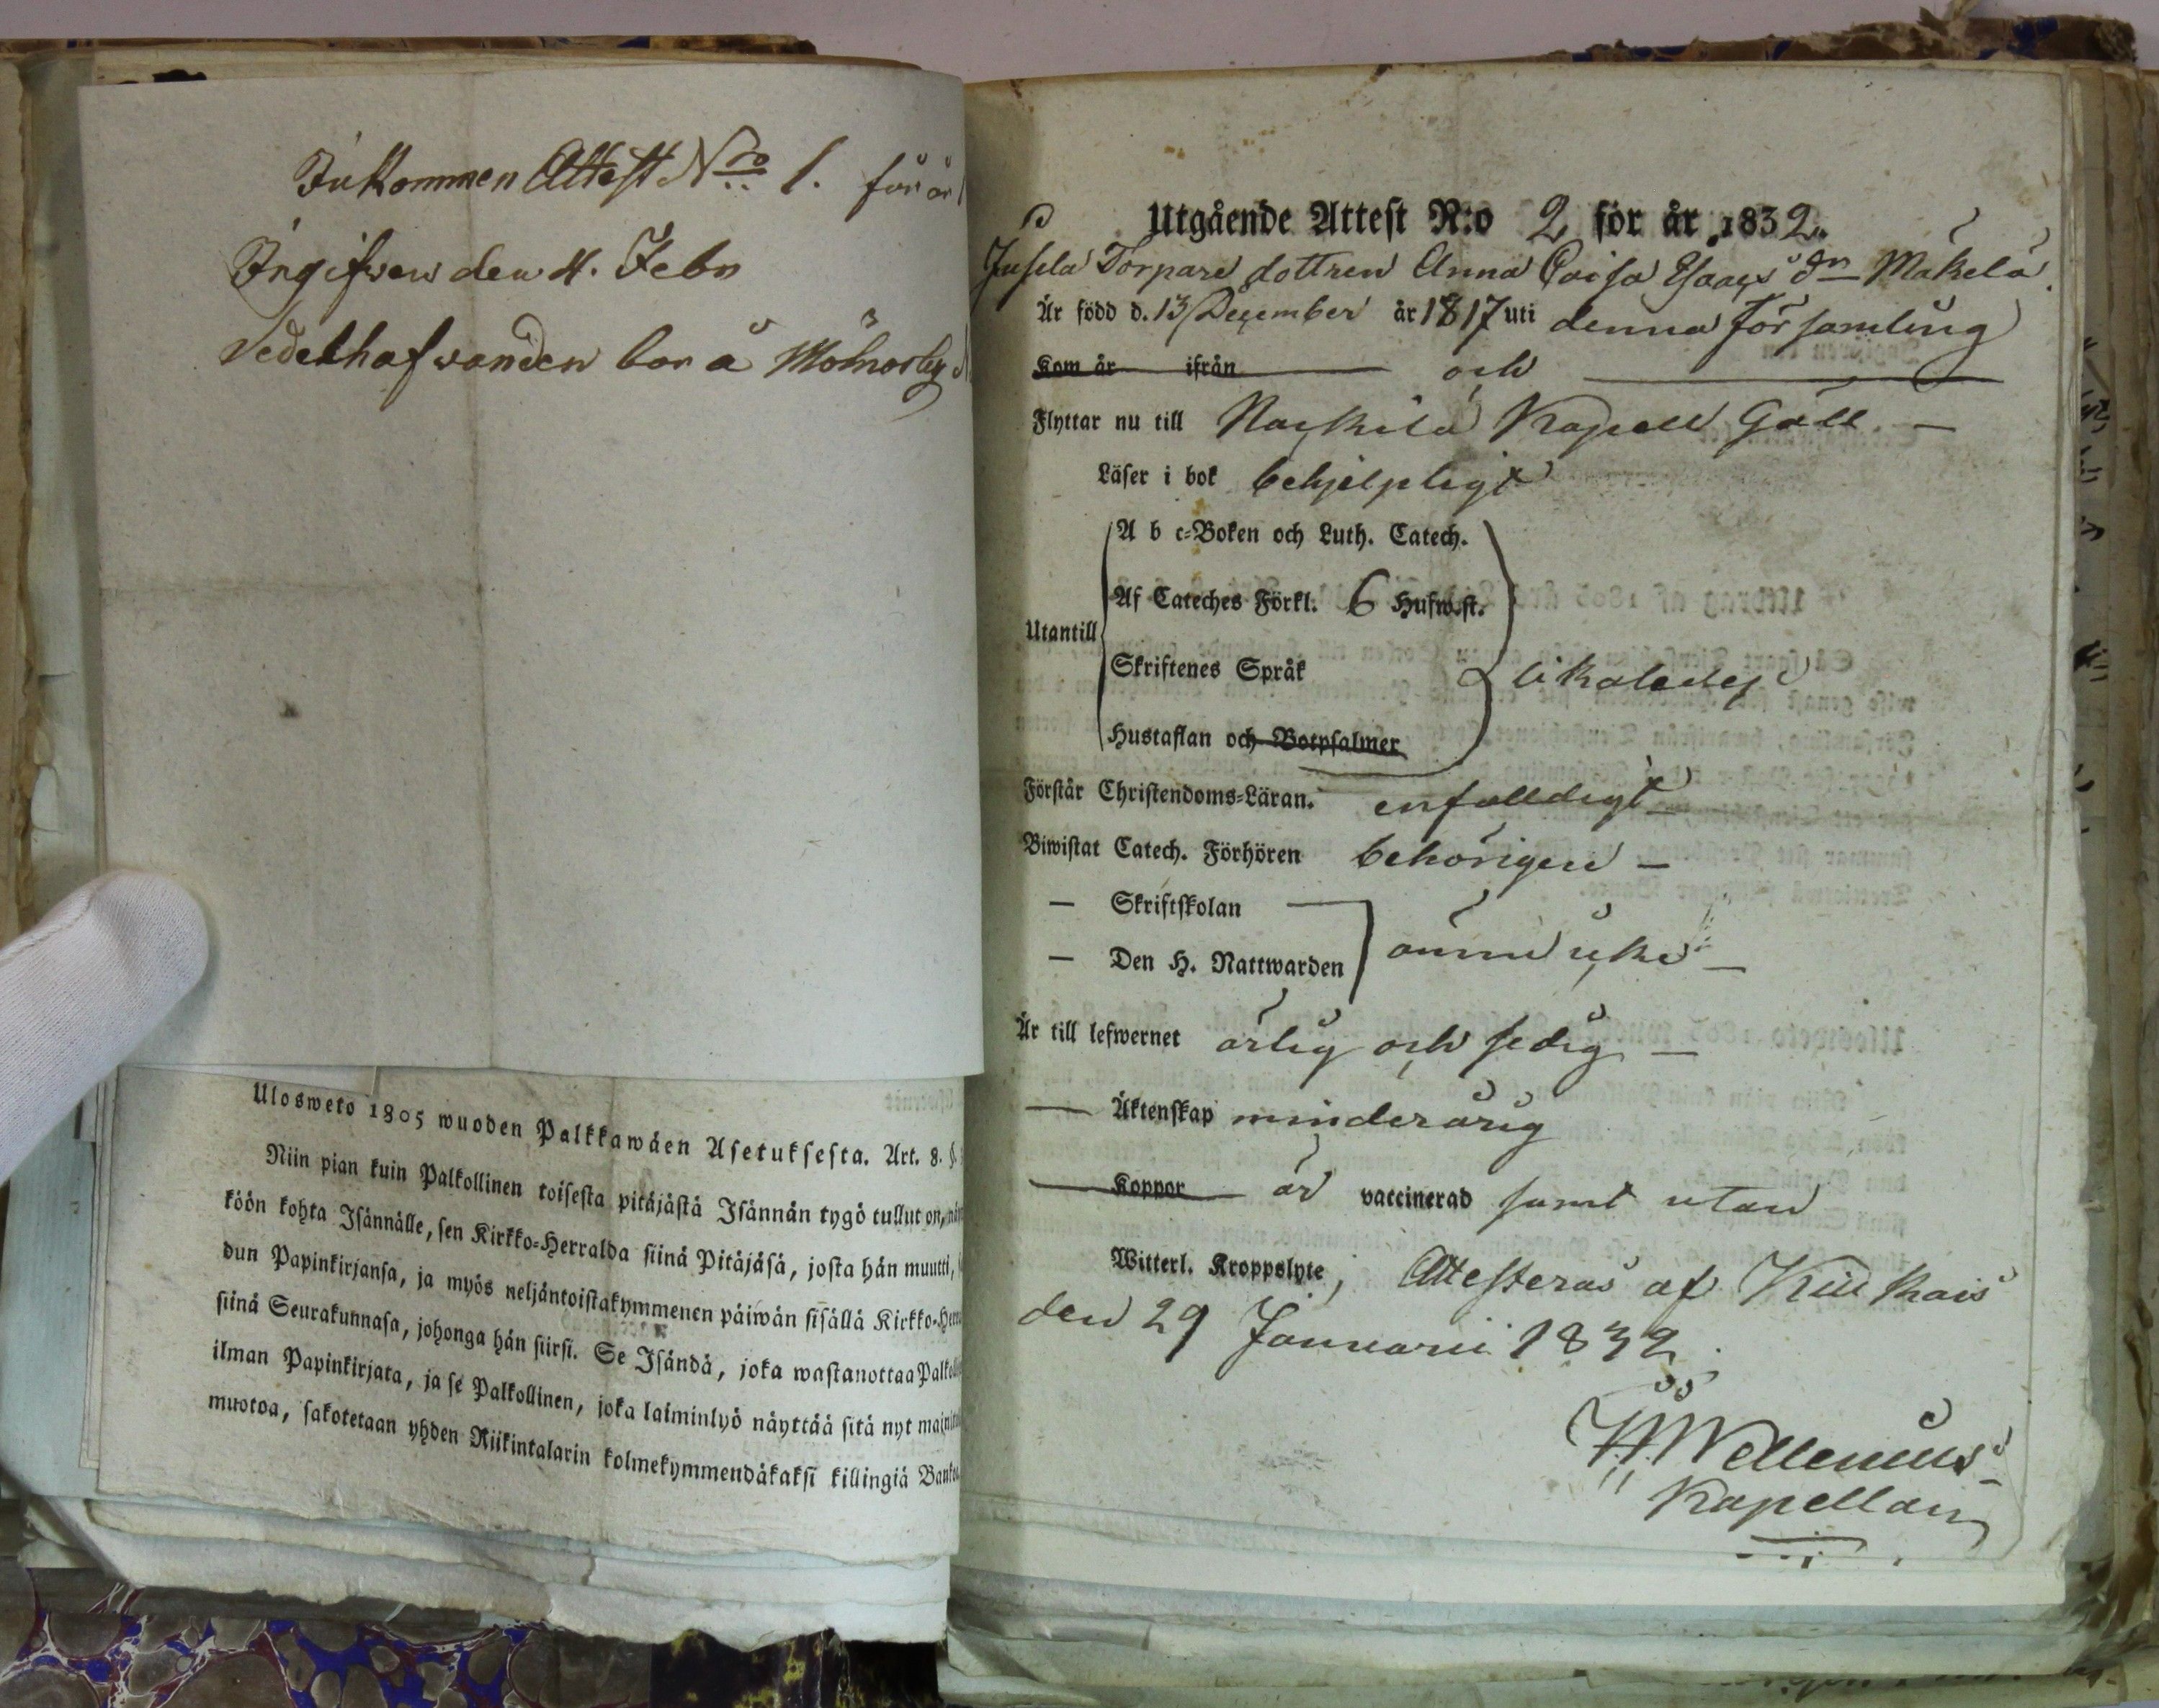 Inkommen Attest Nro 1. för år
Ingifwen den 4. Febr
Vederhafvanden bor å
Ulosweto 1805 wuoden Palkkawäen Asetuksesta. Art. 8. §.
Niin pian kuin Palkollinen toisesta pitäjästä Isännän tygö tullut on,
köön kohta Isännälle, sen Kirkko-Herralda siinä Pitäjäsä, josta hän muutti,
dun Papinkirjansa, ja myös neljäntoistakymmenen päiwän sisällä Kirkko-
siinä Seurakunnasa, johonga hän siirsi. Se Isändä, joka wastanottaa
ilman Papinkirjata, ja se Palkollinen, joka laiminlyö näyttää sitä nyt
muotoa, sakotetaan yhden Riikintalarin kolmekymmendäkaksi killingiä
Utgående Attest N:o 2 för år 1832.
Jusela Torpare dottren Anna Caisa Esaacs dr Mäkelä.
Är född d. 13 December år 1817 uti denna Församling
Kom år ifrån och
Flyttar nu till Nackila Kapell Gäll —
Läser i bok behjelpligt
A b c-Boken och Luth. Catech.
Af Cateches Förkl. 6 Hufw.st.
Utantill
Skriftenes Språk likaledes
Hustaflan och Botpsalmer
Förstår Christendoms-Läran. enfalldigt
Biwistat Catech. Förhören behörigen —
— Skriftskolan
— Den H. Nattwarden ännu icke —
Är till lefwernet ärlig och sedig —
— Äktenskap minderårig
Koppor är vaccinerad samt utan
Witterl. Kroppslyte; Attesteras af Kiukais
den 29 Januarii 1832.
Wellenius
Kapellan